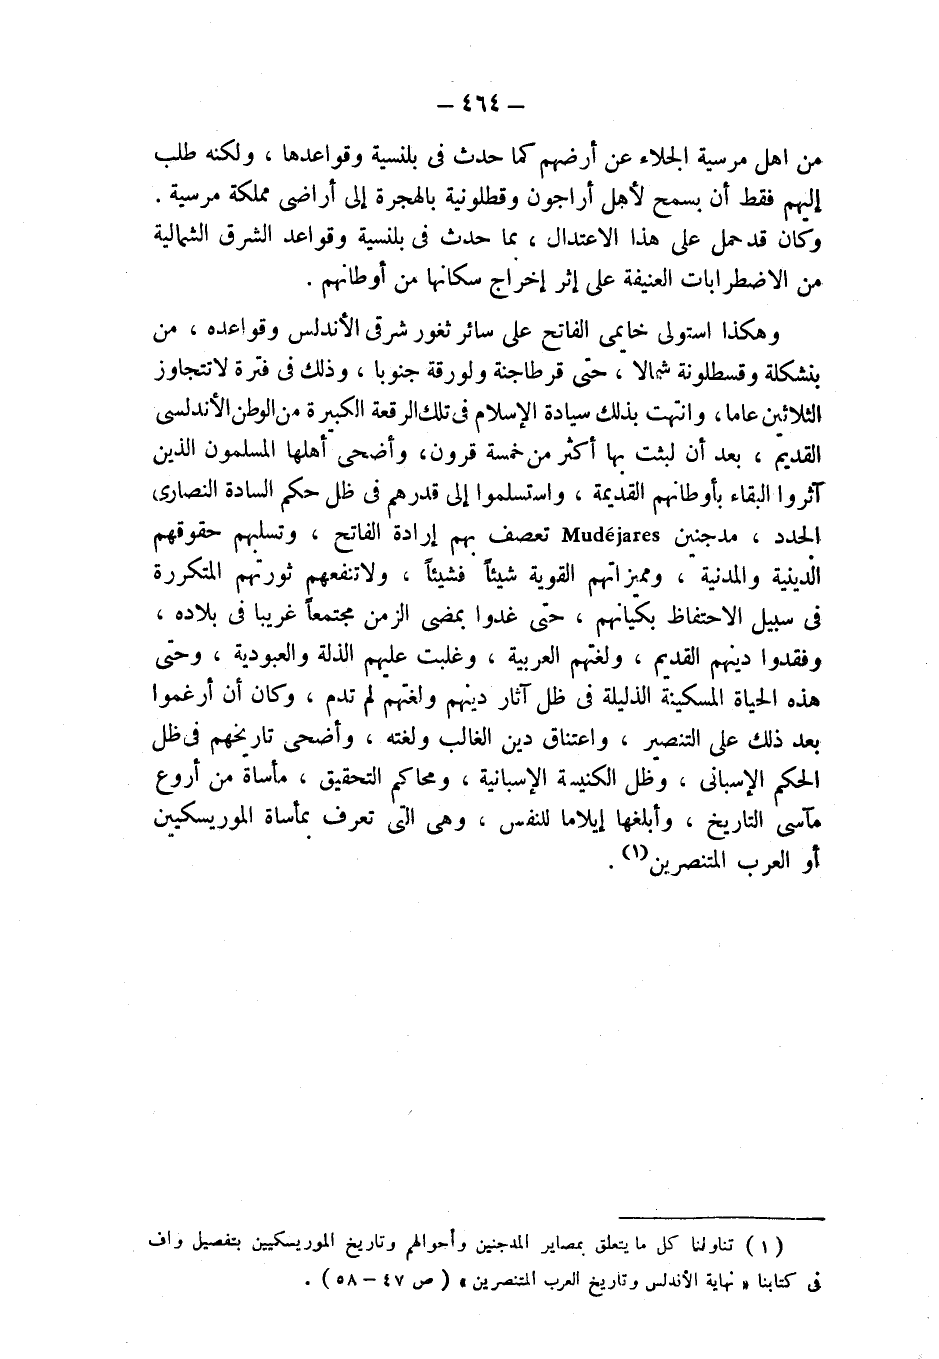 — ٤٦٤ —
من اهل مرسية الجلاء عن أرضهم كما حدث فى بلنسية وقواعدها ، ولكنه طلب
إليهم فقط أن يسمح لأهل أراجون وقطلونية بالهجرة إلى أراضى مملكة مرسية .
وكان قد حمل على هذا الاعتدال ، بما حدث فى بلنسية وقواعد الشرق الشمالية
من الاضطرابات العنيفة على إثر إخراج سكانها من أوطانهم .
وهكذا استولى خايمى الفاتح على سائر ثغور شرقى الأندلس وقواعده ، من
بنشكلة وقسطلونة شمالا ، حتى قرطاجنة ولورقة جنوبا ، وذلك فى فترة لاتتجاوز
الثلاثين عاما، وانتهت بذلك سيادة الإسلام فى تلك الرقعة الكبيرة من الوطن الأندلسى
القديم ، بعد أن لبثت بها أكثر من خمسة قرون، وأضحى أهلها المسلمون الذين
آثروا البقاء بأوطانهم القديمة ، واستسلموا إلى قدرهم فى ظل حكم السادة النصارى
الجدد ، مدجنين Mudéjares تعصف بهم إرادة الفاتح ، وتسلبهم حقوقهم
الدينية والمدنية ، ومميزاتهم القوية شيئاً فشيئاً ، ولاتنفعهم ثورتهم المتكررة
فى سبيل الاحتفاظ بكيانهم ، حتى غدوا بمضى الزمن مجتمعاً غريبا فى بلاده ،
وفقدوا دينهم القديم ، ولغتهم العربية ، وغلبت عليهم الذلة والعبودية ، وحتى
هذه الحياة المسكينة الذليلة فى ظل آثار دينهم ولغتهم لم تدم ، وكان أن أرغموا
بعد ذلك على التنصير ، واعتناق دين الغالب ولغته ، وأضحى تاريخهم فى ظل
الحكم الإسبانى ، وظل الكنيسة الإسبانية ، ومحاكم التحقيق ، مأساة من أروع
مآسى التاريخ ، وأبلغها إيلاما للنفس ، وهى التى تعرف بمأساة الموريسكيين
أو العرب المتنصرين(١) .
(١) تناولنا كل ما يتعلق بمصاير المدجنين وأحوالهم وتاريخ الموريسكيين بتفصيل واف
فى كتابنا « نهاية الأندلس وتاريخ العرب المتنصرين » ( ص ٤٧ – ٥٨ ) .